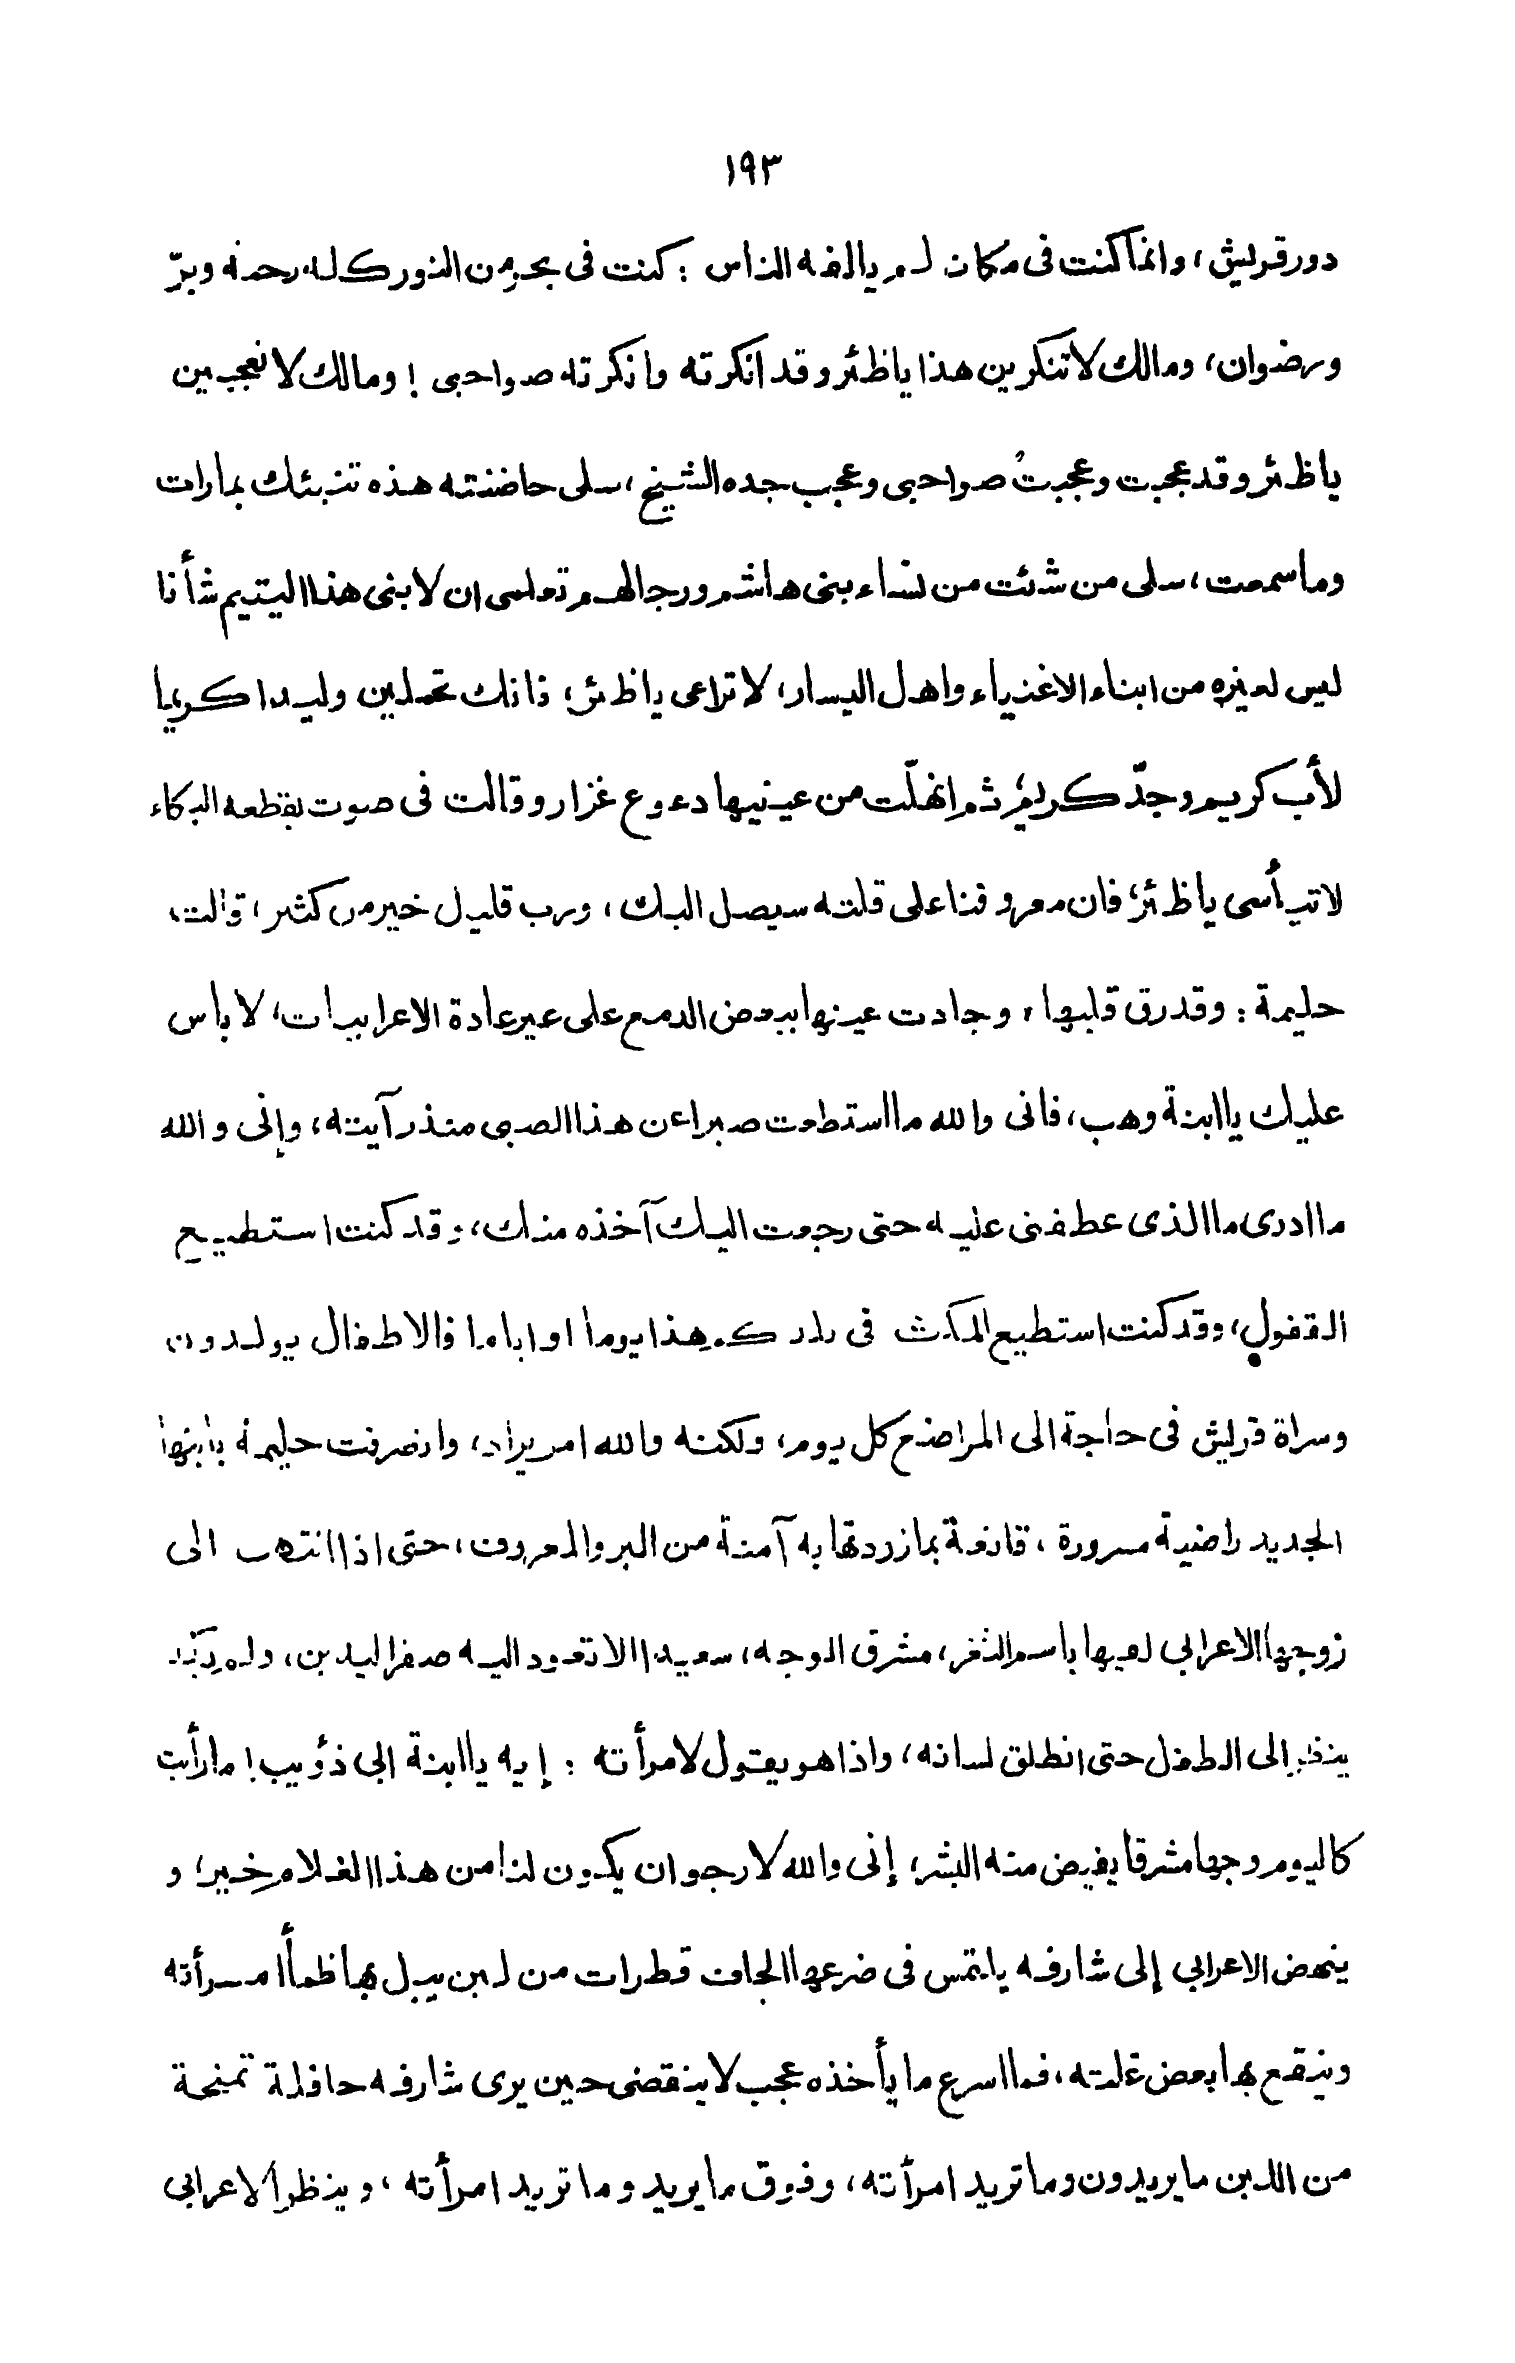 ١٩٣
دور قريش، وانما كنت فى مكان لم يالفه الناس : كنت فى بحر من النور كله رحمة وبرّ
ورضوان، ومالك لا تنكرين هذا ياظئر وقد انكرته وانكرته صواحبى ! ومالك لا تعجبين
ياظئر وقد عجبت وعجبتْ صواحبى وعجب جده الشيخ، سلى حاضنته هذه تنبئك بما رات
وما سمعت، سلى من شئت من نساء بنى هاشم ورجالهم تعلمى ان لابنى هذا اليتيم شأنا
ليس لغيره من ابناء الاغنياء واهل اليسار، لا تراعى ياظئر، فانك تحملين وليدا كريما
لأب كريم وجدّ كريم، ثم انهلّت من عينيها دموع غزار وقالت فى صوت يقطعه البكاء
لا تبأسى ياظئر، فان معروفنا على قلته سيصل اليك، ورب قليل خير من كثير، قالت
حليمة : وقد رق قلبها، وجادت عينها ببعض الدمع على غير عادة الاعرابيات، لا باس
عليك يا ابنة وهب، فانى والله ما استطعت صبرا عن هذا الصبى منذ رآيته، وإنى والله
ما ادرى ما الذى عطفنى عليه حتى رجعت اليك آخذه منك، وقد كنت استطيع
القفول، وقد كنت استطيع المكث فى بلدكم هذا يوما او اياما فالاطفال يولدون
وسراة قريش فى حاجة الى المراضع كل يوم، ولكنه والله امر يراد، وانصرفت حليمة بابنها
الجديد راضية مسرورة، قانعة بما زودتها به آمنة من البر والمعروف، حتى اذا انتهت الى
زوجها الاعرابي لقيها باسم الثغر، مشرق الوجه، سعيدا الا تعود اليه صفر اليدين، ولم يكد
ينظر الى الطفل حتى انطلق لسانه، واذا هو يقول لامرأته : إيه يا ابنة ابى ذؤيب! ما رأيت
كاليوم وجها مشرقا يفيض منه البشر، إنى والله لارجو ان يكون لنا من هذا الغلام خير، و
ينهض الاعرابي إلى شارفه يلتمس فى ضرعها الجاف قطرات من لبن يبل بها ظمأ امسرأته
وينقع بها بعض غلته، فما اسرع ما يأخذه عجب لا ينقضى حين يرى شارفه حافلة تمنحة
من اللبن ما يريدون وما تريد امرأته، وفوق ما يريد وما تريد امرأته، وينظر الاعرابي